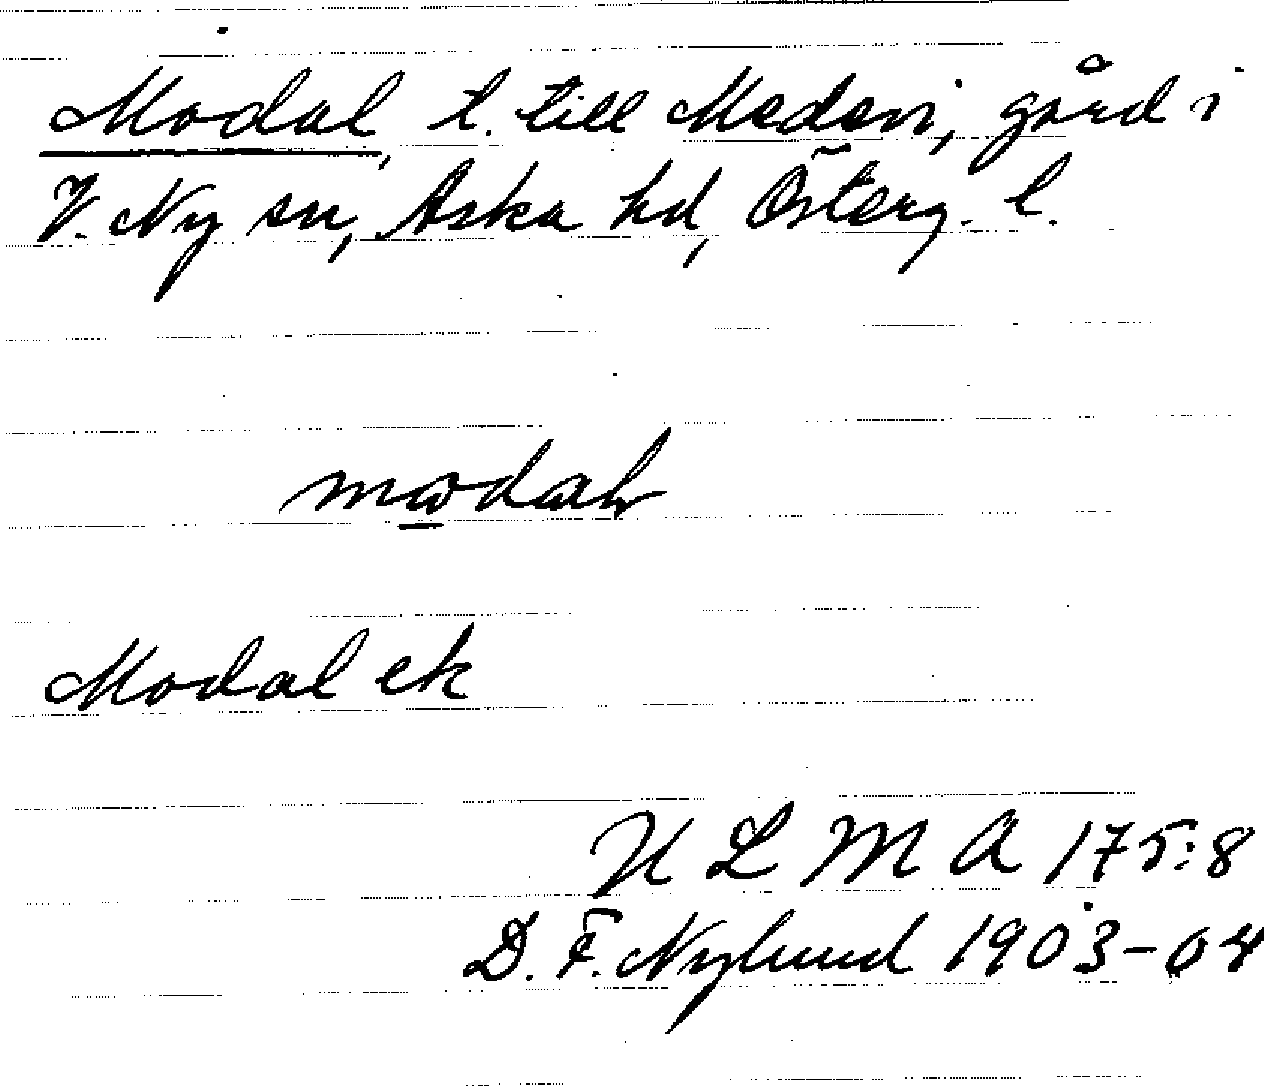 Modal, t. till Medevi, gård i
V. Ny sn, Aska hd, Österg. l.
modal
Modal ek
ULMA 175:8
D. F. Nylund 1903-04